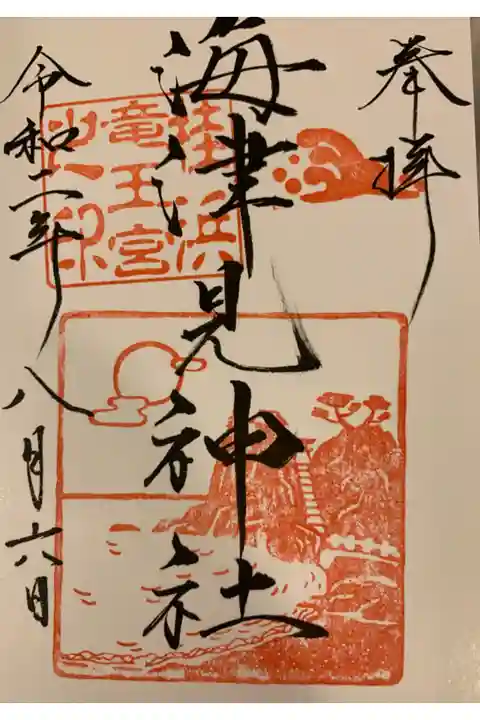 奉拝
海津見神社
桂浜
竜王宮
之印
令和二年八月六日